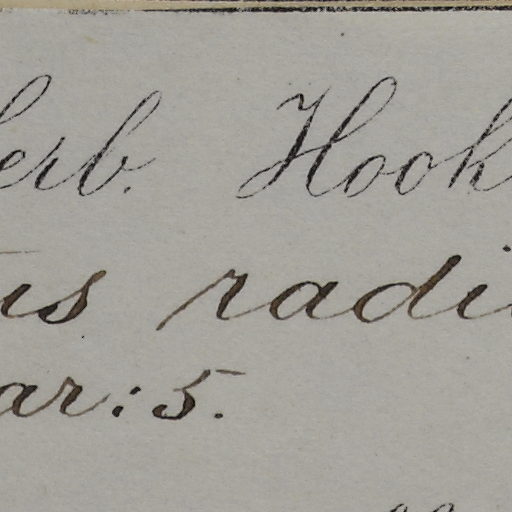 erb. Hook
us radi
ar: 5.